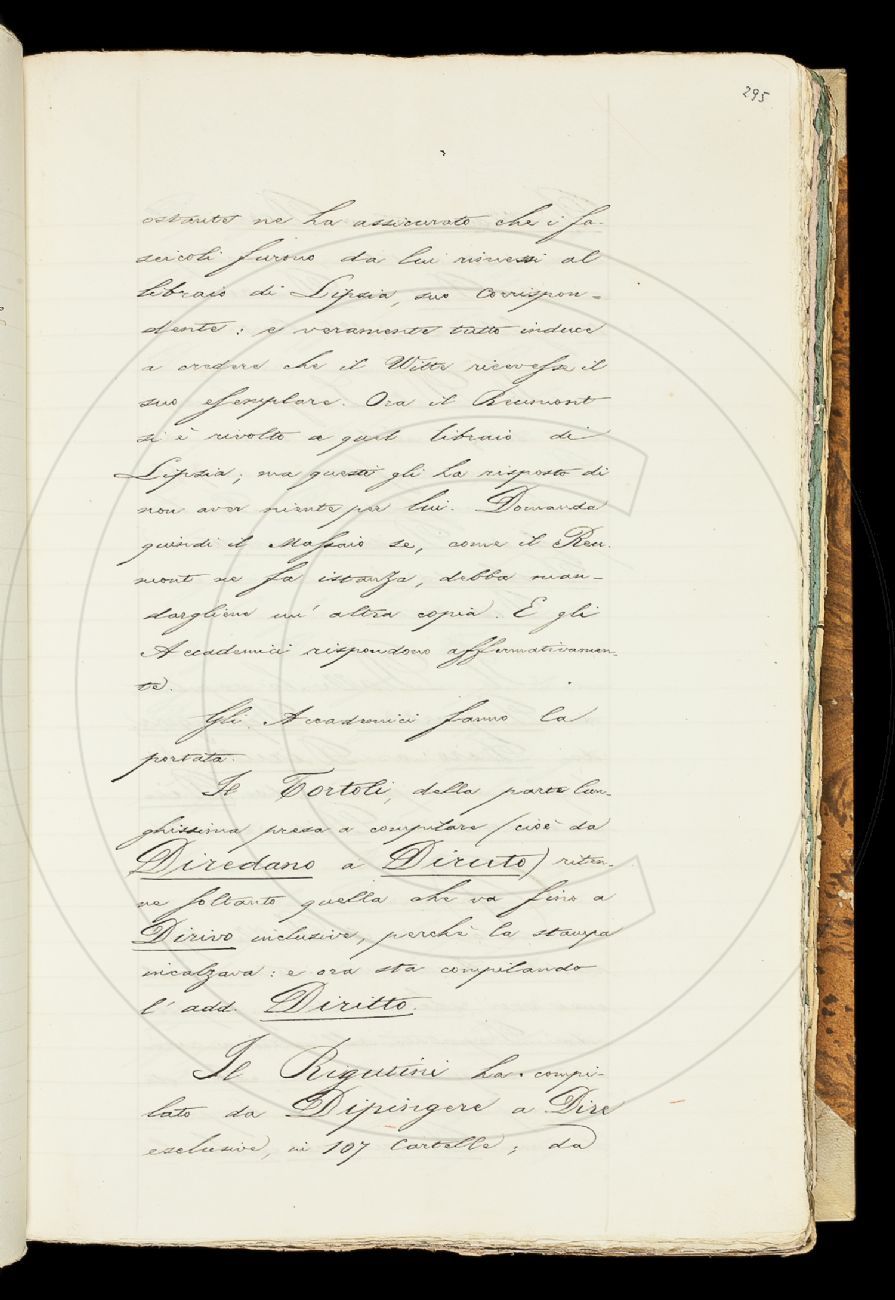 295
ostante ne ha assicurato che i fa-
scicoli furono da lui rimessi al
libraio di Lipsia, suo Corrispon-
dente: e veramente tutto induce
a credere che il Witte ricevesse il
suo esemplare. Ora il Reumont
si è rivolto a quel libraio di
Lipsia; ma questi gli ha risposto di
non aver niente per lui. Domanda
quindi il Massaio se, come il Reu-
mont ne fa istanza, debba man-
dargliene un' altra copia. E gli
Accademici rispondono affermativamen-
te.
Gli Accademici fanno la
portata.
Il Tortoli, della parte lun-
ghissima presa a compilare (cioè da
Diredano a Diruto) riten-
ne soltanto quella che va fino a
Dirivo inclusive, perchè la stampa
incalzava: e ora sta compilando
l' add. Diritto.
Il Rigutini ha compi-
lato da Dipingere a Dire
esclusive, in 107 Cartelle; da